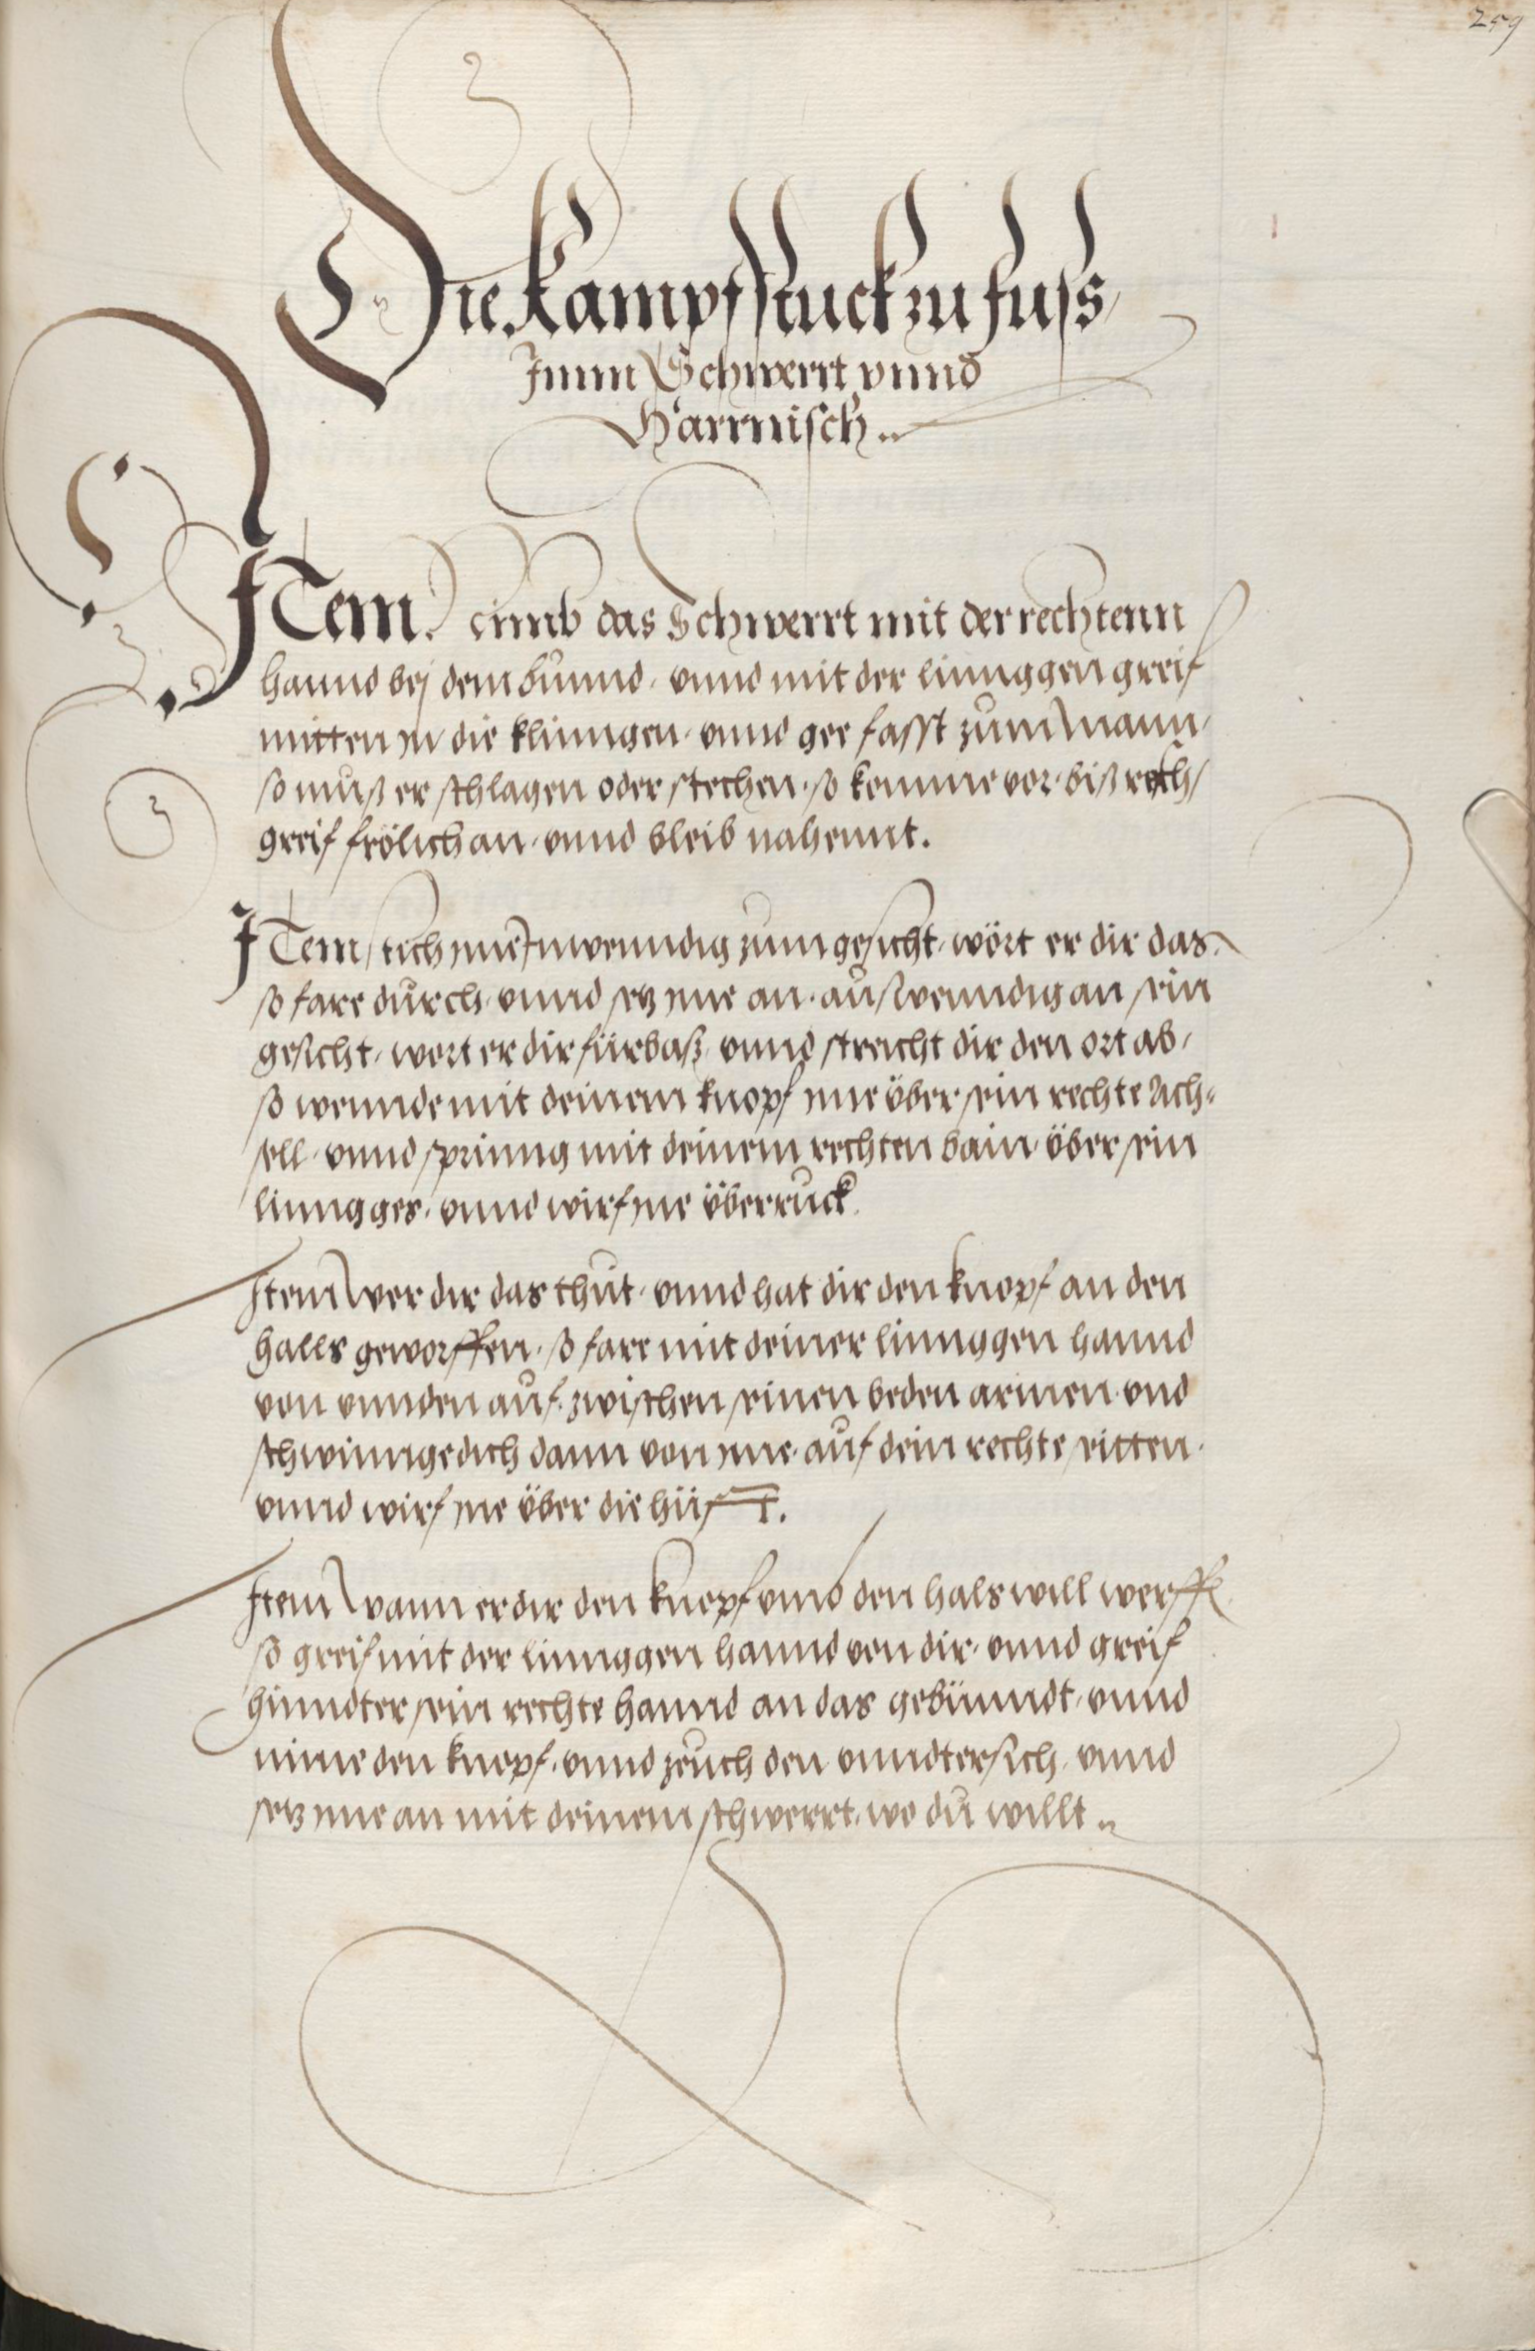 259
Die Kampfstuck zu fuss,
Inn Schwerrt vnnd
Harrnisch..
ITem. nimb das Schwerrt mit der rechtenn
hannd bej dem bunnd, vnnd mit der linnggen greif
mitten in die klinngen, vnnd gee fasst zum mann,
so muß er schlagen oder stechen, so komme vor, biß resch,
greif frölich an, vnnd bleib nahennt.
ITem stich ime inwenndig zum gesicht, wört er dir das,
so fare durch, vnnd setz ime an, ausswenndig an sein
gesicht, wert er dir fürbaß, vnnd streicht dir den ort ab,
so wennde mit deinem knopf ime über sein rechte Ach=
sell, vnnd sprinng mit deinem rechten bain, über sein
linngges, vnnd wirf ine überruck.
Item wer dir das thut, vnnd hat dir den knopf an den
halls geworffen, so fare mit deiner linnggen hannd
von vnnden auf, zwischen seinen beden armen, vnd
schwinnge dich dann von ime, auf dein rechte seitten,
vnnd wirf ine über die hüfft.
Item wann er dir den knopf vmb den hals will werffen
so greif mit der linnggen hannd von dir, vnnd greif
hinndter sein rechte hannd an das gebünndt, vnnd
nime den knopf, vnnd zeuch den vnndtersich, vnnd
setz ime an mit deinem schwerrt, wo du willt..